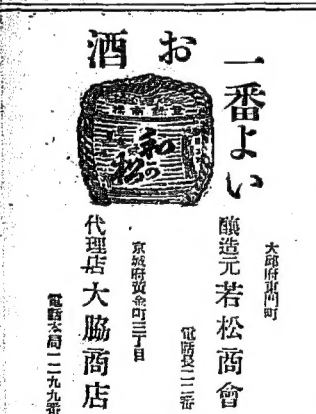 一番よい
お酒
登録商標
和の松
大邱府東門町
醸造元 若松商會
電話長二二番
京城府黄金町三丁目
代理店 大脇商店
電話本局一二九九番